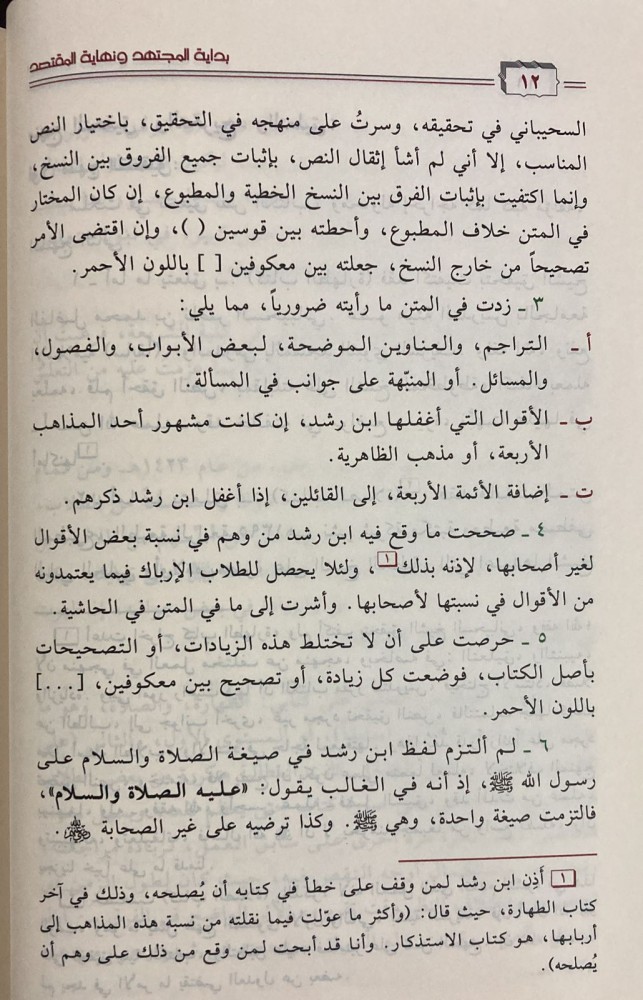 بداية المجتهد ونهاية المقتصد
١٢
السحيباني في تحقيقه، وسرتُ على منهجه في التحقيق، باختيار النص
المناسب، إلا أني لم أشأ إثقال النص، بإثبات جميع الفروق بين النسخ،
وإنما اكتفيت بإثبات الفرق بين النسخ الخطية والمطبوع، إن كان المختار
في المتن خلاف المطبوع، وأحطته بين قوسين ( )، وإن اقتضى الأمر
تصحيحاً من خارج النسخ، جعلته بين معكوفين [ ] باللون الأحمر.
٣ ـ زدت في المتن ما رأيته ضرورياً، مما يلي:
أ ـ التراجم، والعناوين الموضحة، لبعض الأبواب، والفصول،
والمسائل. أو المنبّهة على جوانب في المسألة.
ب ـ الأقوال التي أغفلها ابن رشد، إن كانت مشهور أحد المذاهب
الأربعة، أو مذهب الظاهرية.
ت ـ إضافة الأئمة الأربعة، إلى القائلين، إذا أغفل ابن رشد ذكرهم.
٤ ـ صححت ما وقع فيه ابن رشد من وهم في نسبة بعض الأقوال
لغير أصحابها، لإذنه بذلك١، ولئلا يحصل للطلاب الإرباك فيما يعتمدونه
من الأقوال في نسبتها لأصحابها. وأشرت إلى ما في المتن في الحاشية.
٥ ـ حرصت على أن لا تختلط هذه الزيادات، أو التصحيحات
بأصل الكتاب، فوضعت كل زيادة، أو تصحيح بين معكوفين، [...]
باللون الأحمر.
٦ ـ لم ألتزم لفظ ابن رشد في صيغة الصلاة والسلام على
رسول الله ﷺ، إذ أنه في الغالب يقول: «عليه الصلاة والسلام»،
فالتزمت صيغة واحدة، وهي ﷺ. وكذا ترضيه على غير الصحابة ﷺ.
١ أَذِن ابن رشد لمن وقف على خطأ في كتابه أن يُصلحه، وذلك في آخر
كتاب الطهارة، حيث قال: (وأكثر ما عوّلت فيما نقلته من نسبة هذه المذاهب إلى
أربابها، هو كتاب الاستذكار. وأنا قد أبحت لمن وقع من ذلك على وهم أن
يُصلحه).